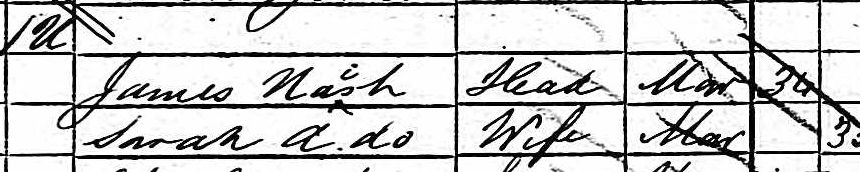 1 U
James Naish Head Mar 34
Sarah A. do Wife Mar 3